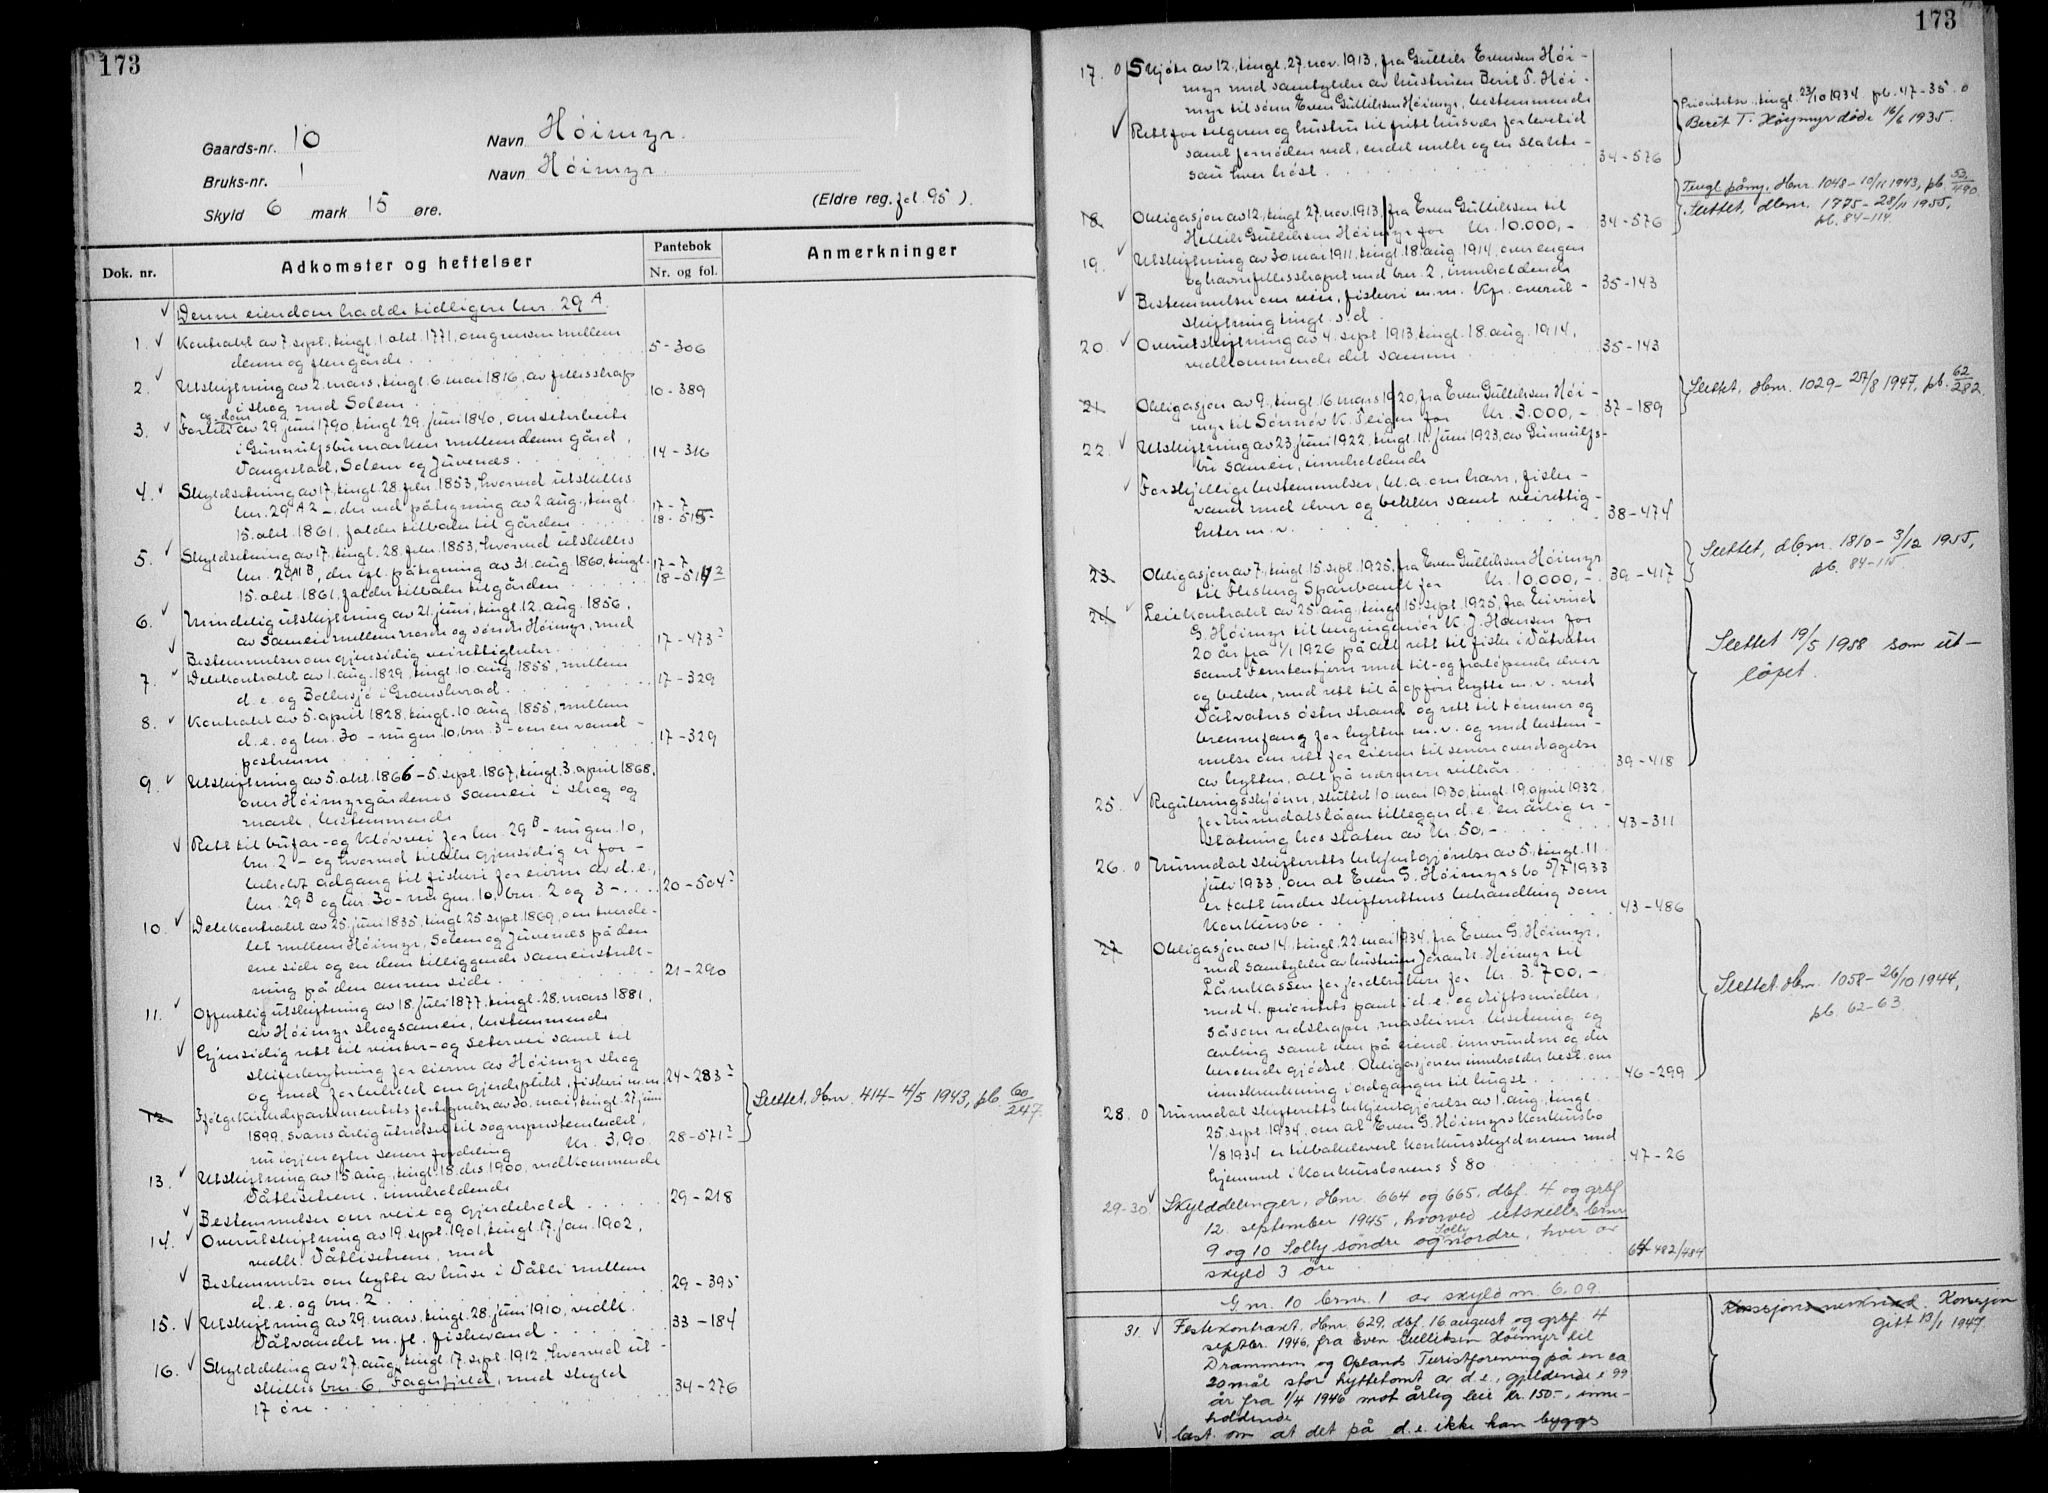 173
Gaards-nr. 10 Navn Höimyr.
Bruks-nr. 1 Navn Höimyr.
Skyld 6 mark 15 øre. (Eldre reg. fol. 95).
Dok. nr. Adkomster og heftelser Pantebok Nr. og fol. Anmerkninger
Denne eiendom hadde tidligere lnr. 29 A.
1. Kontrakt av 7. sept., tingl. 1. okt. 1771, om grensen mellem
denne og flere gårde 5-306
2. Utskiftning av 2. mars, tingl. 6. mai 1816, av fellesskap
i skog med Solem 10-389
og dom
3. Forlik av 29. juni 1790, tingl. 29. juni 1840, om seterbeite
i Gunnulfsbumarken mellem denne gård,
Vangestad, Solem og Juvenes. 14-316
4. Skyldsetning av 17., tingl. 28. febr. 1853, hvorved utskilles
lnr. 29 A 2 -, der med påtegning av 2. aug., tingl. 17-7
15. okt. 1861, falder tilbake til gården 18-515
5. Skyldsetning av 17., tingl. 28. febr. 1853, hvorved utskilles
lnr. 29 A1B, der iflg. påtegning av 31. aug. 1860, tingl. 17-7
15. okt. 1861, falder tilbake til gården
6. Mindelig utskiftning av 21. juni, tingl. 12. aug. 1856,
av sameie mellem nordre og söndre Höimyr, med
Bestemmelser om gjensidig veirettigheter. 17-473
7. Delekontrakt av 1. aug. 1829, tingl. 10. aug. 1855, mellem
d.e. og Bolkesjö i Gransherad. 17-329
8. Kontrakt av 5. april 1828, tingl. 10. aug. 1855, mellem
d.e. og lnr. 30 - nu gnr. 10, bnr. 3 - om en vand-
posterenn 17-329
9. Utskiftning av 5. okt. 1866 - 5. sept. 1867, tingl. 3. april 1868,
om Höimyrgårdenes sameie i skog og
mark, bestemmende
Rett til bufar- og klövvei for lnr. 29 B - nu gnr. 10,
bnr. 2 - og hvorved tillike gjensidig er for-
beholdt adgang til fiskeri for eierne av d.e.,
lnr. 29 B og lnr. 30 - nu gnr. 10, bnr. 2 og 3 -. 20-504
10. Delekontrakt av 25. juni 1835, tingl. 25. sept. 1869, om
mellem Höimyr, Solem og Juvenes på den
ene side og en dem tilliggende sameiestrek-
ning på den annen side. 21-290
11. Offentlig utskiftning av 18. juli 1877, tingl. 28. mars 1881,
av Höimyr skogsameie, bestemmende
Gjensidig rett til vinter- og setervei samt til
skiferbrytning for eierne av Höimyr skog
og med forbehold om gjerdeplikt, fiskeri m.m. 24-283
12. Ifölge Kirkedepartementets fastsettelse av 30. mai, tingl. 27. juni
1899, svares årlig utredsel til sogneprestembedet,
nu igjen efter senere fordeling Kr. 3,90. 28-571 Slettet, dbnr. 414 - 4/5 1943, pb 60/247.
13. Utskiftning av 15. aug., tingl. 18. des. 1900, vedkommende
Våtlisetrene, inneholdende
Bestemmelser om veie og gjerdehold 29-218
14. Overutskiftning av 19. sept. 1901, tingl. 17. jan. 1902,
vedk. Våtlisetrene, med
Bestemmelse om bytte av huse i Våtli mellem
d.e. og bnr. 2 29-395
15. Utskiftning av 29. mars, tingl. 28. juni 1910, vedk.
Våtvandet m.fl. fiskevand. 33-184
16. Skylddeling av 27. aug., tingl. 17. sept. 1912, hvorved ut-
skilles bnr. 6, Fagerfjeld, med skyld
17 öre 34-276
173
17. o Skjöte av 12., tingl. 27. nov. 1913, fra Gullik Evensen Höi-
myr med samtykke av hustruen Berit T. Höi-
myr til sönn Even Gulliksen Höimyr, bestemmende
Rett for selgeren og hustru til fritt husvær for levetid
samt fornöden ved, endel melk og en slakte-
sau hver höst 34-576
Prioritetsv. tingl. 23/10 1934. pb. 47-35. o
Beret T. Höymyr döde 16/6 1935.
18. Obligasjon av 12., tingl. 27. nov. 1913, fra Even Gulliksen til
Hellik Gulliksen Höimyr for Kr. 10.000,- 34-576
Tingl. påny, dbnr. 1048 - 10/11 1943, pb. 53/490
Slettet, dbnr. 1775 - 28/11 1955,
pb. 84-114.
19. Utskiftning av 30. mai 1911, tingl. 18. aug. 1914, over engen
og havnefellesskapet med bnr. 2, inneholdende
Bestemmelser om veie, fiskeri m.m. Kfr. overut-
skiftning tingl. s.d. 35-143
20. Overutskiftning av 4. sept. 1913, tingl. 18. aug. 1914,
vedkommende det samme 35-143
21. Obligasjon av 9., tingl. 16. mars 1920, fra Even Gulliksen Höi-
myr til Sönnöv K. Teigen for Kr. 3.000,- 37-189
Slettet, dbnr. 1029 - 25/8 1947, pb. 62/282.
22. Utskiftning av 23. juni 1922, tingl. 11. juni 1923, av Gunnulfs-
bu sameie, inneholdende
Forskjellige bestemmelser, bl.a. om havn, fiske-
vand med elver og bekker samt veirettig-
heter m.v. 38-474
23. Obligasjon av 7., tingl. 15. sept. 1925, fra Even Gulliksen Höimyr
til Flesberg Sparebank for Kr. 10.000,- 39-417
Slettet, dbnr. 1810 - 3/12 1955,
pb. 84-115.
24. Leiekontrakt av 25. aug., tingl. 15. sept. 1925, fra Eivind
G. Höimyr til ingeniör K. J. Hansen for
20 år fra 1/1 1926 på alt rett til fiske i Våtvatn
samt Femtetjern med til- og fralöpende elver
og bekker, med rett til å opföre hytte m.v. ved
Våtvatns östre strand og rett til tömmer og
brennefang for hytten m.v. og med bestem-
melse om rett for eieren til senere overdragelse
av hytten, alt på nærmere vilkår. 39-418
Slettet 19/5 1958 som ut-
löpet.
25. Reguleringsskjönn, sluttet 10. mai 1930, tingl. 19. april 1932,
for Numedalslågen tillegger d.e. en årlig er-
statning hos staten av Kr. 50,- 43-311
26. o Numedal skifteretts bekjentgjörelse av 5., tingl. 11.
juli 1933, om at Even G. Höimyrs bo 5/7 1933
er tatt under skifterettens behandling som
konkursbo 43-486
27. Obligasjon av 14., tingl. 22. mai 1934, fra Even G. Höimyr,
med samtykke av hustruen Jöran K. Höimyr til
Lånekassen for jordbrukere for Kr. 3.700,-
med 4. prioritets pant i d.e. og driftsmidler,
såsom redskaper, maskiner, besetning og
avling samt den på eiend. innvundne og der
beroende gjödsel. Obligasjonen inneholder best. om
innskrenkning i adgangen til hugst. 46-299
Slettet dbnr. 1058 - 26/10 1944,
pb. 62-63.
28. o Numedal skifteretts bekjentgjörelse av 1. aug., tingl.
25. sept. 1934, om at Even G. Höimyrs konkursbo
1/8 1934 er tilbakelevert konkursskyldneren med
hjemmel i konkurslovens § 80 47-26
29-30 Skylddelinger, dbnr. 664 og 665, dbf. 4 og grbf
12. september 1945, hvorved utskilles bnr
9 og 10 Solly söndre og Solly nordre, hver av
skyld 3 öre 64-482/484
Gnr. 10 bnr. 1 av skyld m. 6.09.
31. Festekontrakt, dbnr. 629, dbf. 16 august og grbf. 4
septbr. 1946, fra Even Gulliksen Höimyr til
Drammens og Oplands Turistforening på en ca
20 mål stor hyttetomt av d.e., gjeldende i 99
år fra 1/4 1946 mot årlig leie kr. 150-, inne-
holdende
best. om at det på d.e. ikke kan bygges
Konsesjon
gitt 13/1 1947.